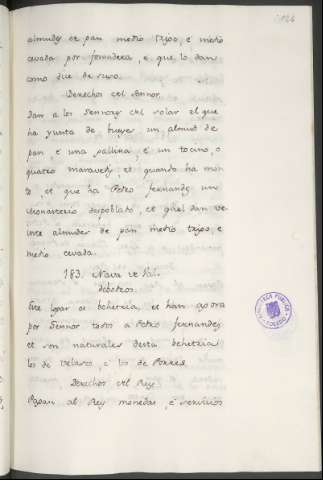 124
almudes de pan medio trigo, e medio
cevada por fonsadera, e que lo dan
como dice de suso.
Derechos del Sennor.
Dan a los Sennores del solar el que
ha yunta de bueyes un almud de
pan, e una gallina, e un tocino, o
quatro maravedis, et quando ha mon
te et que ha Pedro Fernandez un
despoblado, et quel dan ve
inte almudes de pan medio trigo, e
medio cevada.
183. Nava de Sal-
debotros.
Este logar es behetria, et han agora
por Sennor todos a Pedro Fernandez
et son naturales desta behetria
los de Velasco, e los de Porres.
Derechos del Rey
Pagan al Rey monedas, e servicios
BIBLIOTECA PUBLICA
TOLEDO